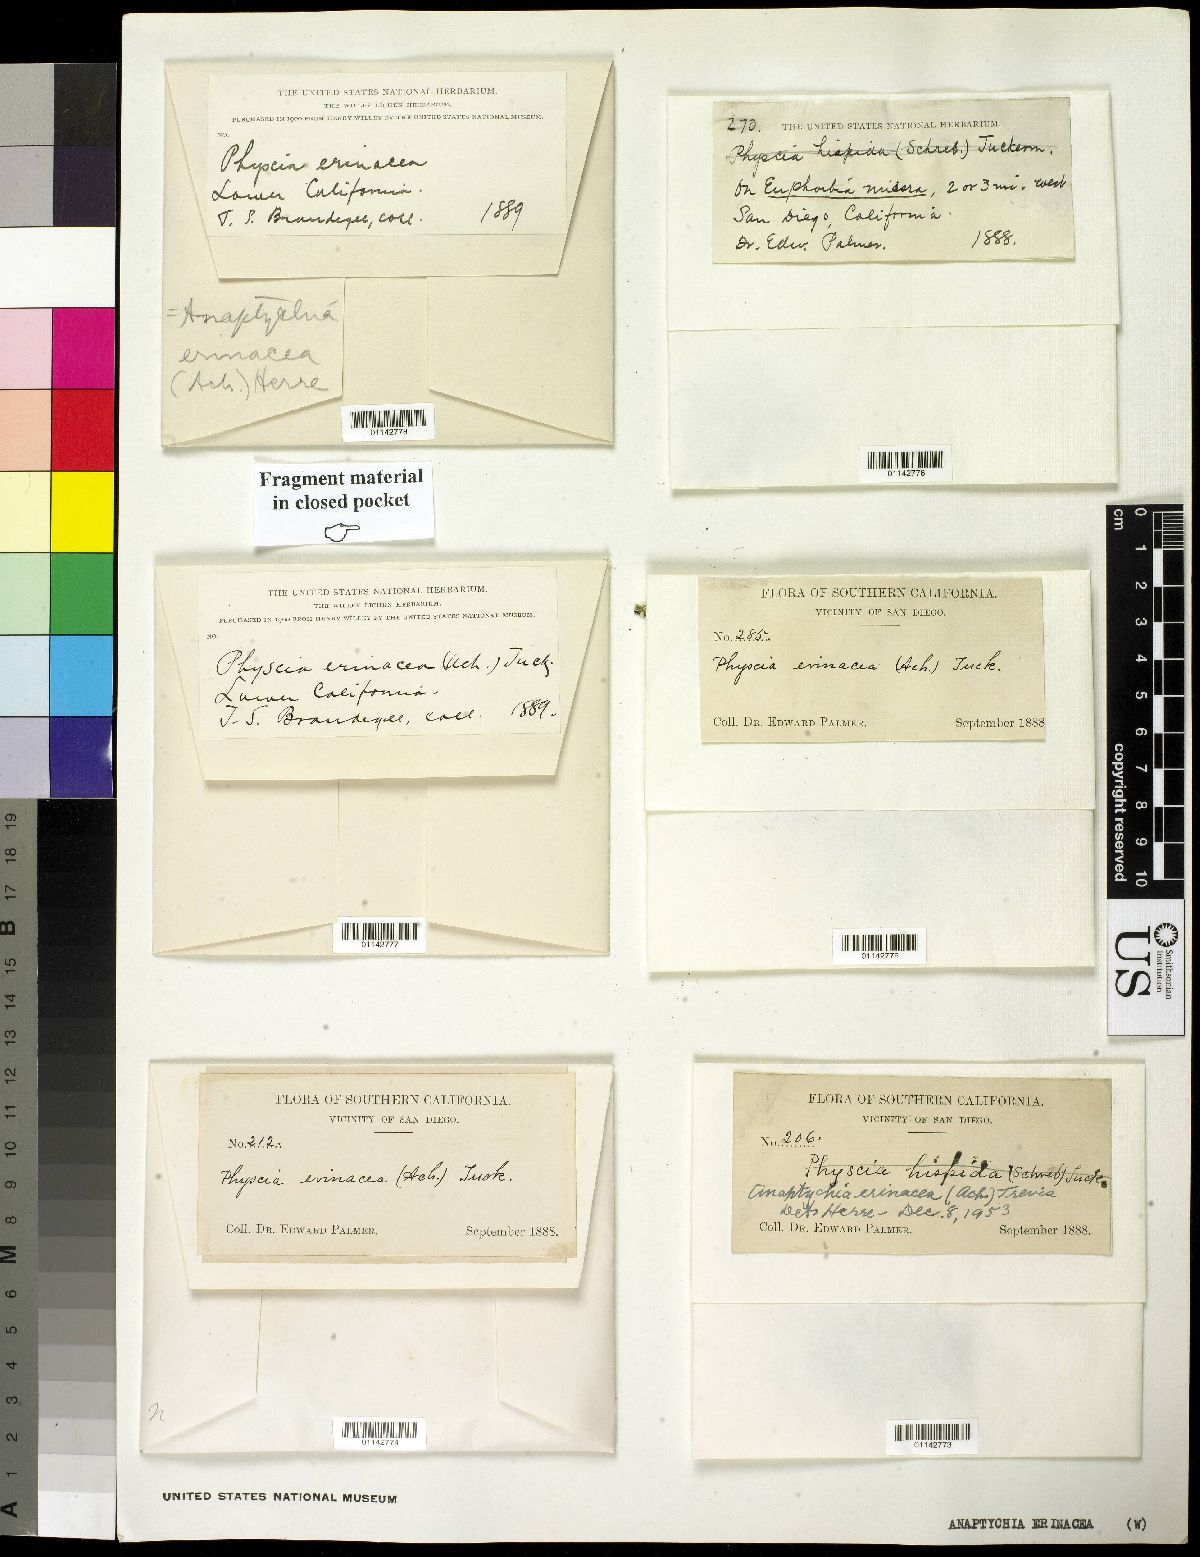 THE UNITED STATES NATIONAL HERBARIUM.
THE WILLEY LICHEN HERBARIUM.
PURCHASED IN 1900 FROM HENRY WILLEY BY THE UNITED STATES NATIONAL MUSEUM.
NO.
Physcia erinacea
Lower California.
T. S. Brandegee, coll. 1889
= Anaptychia
erinacea
(Ach.) Herre
Fragment material
in closed pocket
270. THE UNITED STATES NATIONAL HERBARIUM
Physcia hispida (Schreb.) Tuckerm.
On Euphorbia misera, 2 or 3 mi. west
San Diego, California.
Dr. Edw. Palmer. 1888.
01142776
THE UNITED STATES NATIONAL HERBARIUM.
THE WILLEY LICHEN HERBARIUM.
PURCHASED IN 1900 FROM HENRY WILLEY BY THE UNITED STATES NATIONAL MUSEUM.
NO.
Physcia erinacea (Ach.) Tuck.
Lower California.
T. S. Brandegee, coll. 1889.
01142777
FLORA OF SOUTHERN CALIFORNIA.
VICINITY OF SAN DIEGO.
No. 285.
Physcia erinacea (Ach.) Tuck.
Coll. Dr. Edward Palmer. September 1888
FLORA OF SOUTHERN CALIFORNIA.
VICINITY OF SAN DIEGO.
No. 212.
Physcia erinacea (Ach.) Tuck.
Coll. Dr. Edward Palmer. September 1888.
01142774
FLORA OF SOUTHERN CALIFORNIA.
VICINITY OF SAN DIEGO.
No. 206.
Physcia hispida (Schreb) Tuck.
Anaptychia erinacea (Ach.) Trevis
Det. Herre - Dec. 8, 1953
Coll. Dr. Edward Palmer. September 1888.
01142773
UNITED STATES NATIONAL MUSEUM
ANAPTYCHIA ERINACEA (W)
cm 0 1 2 3 4 5 6 7 8 9 10
copyright reserved
US
Smithsonian
Institution
A 1 2 3 4 5 6 M 8 9 10 11 12 13 14 15 B 17 18 19